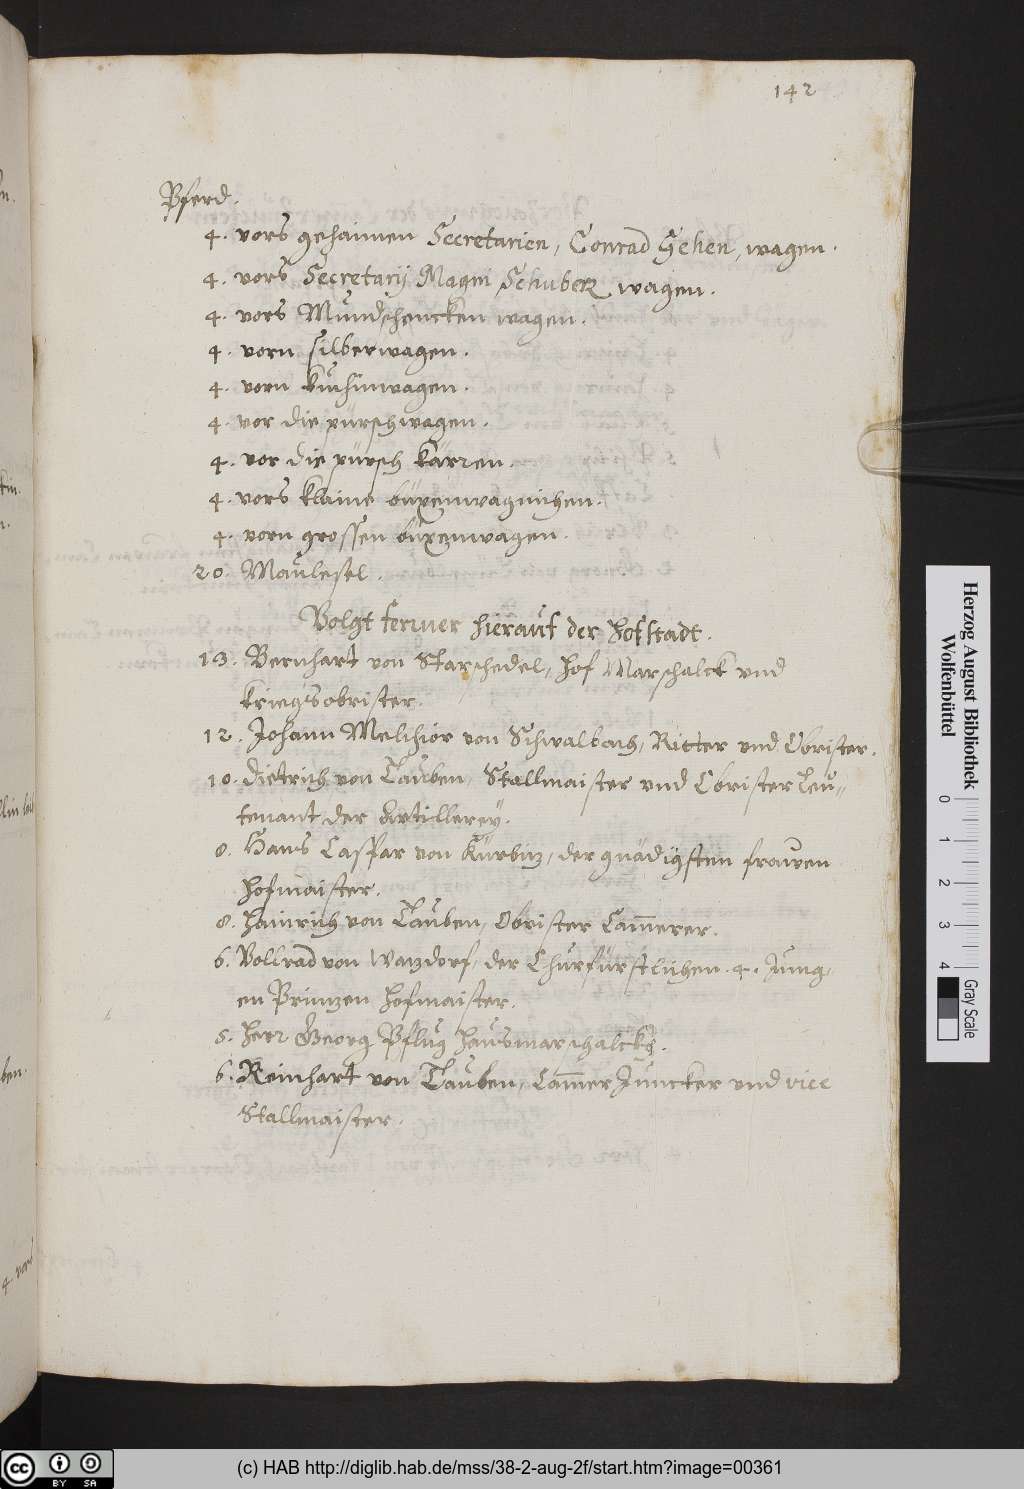 142
Pferd.
4. vors gehaimen Secretarien, Conrad Gehen, wagen.
4. vors Secretarij Magni Schuberz wagen.
4. vors Mundschencken wagen.
4. vorn silberwagen.
4. vorn kuchinwagen.
4. vor die pürschwagen.
4. vor die pürsch kärren.
4. vors klaine büxenwagnichen.
4. vorn grossen büxenwagen.
20. Maulesel.
Volgt ferner hierauf der hofstadt.
13. Bernhart von Starschedel, hof Marschalck vnd
kriegsobrister.
12. Johann Melchior von Schwalbach, Ritter vnd Obrister.
10. Dietrich von Tauben, Stallmaister vnd Obrister Leu-
tenant der Artillerey.
8. Hans Caspar von Kürbiz, der gnädigsten frawen
hofmaister.
8. Hainrich von Tauben, Obrister Cam̄erer.
6. Vollrad von Wazdorf, der Churfürstlichen 4. Jung-
en Prinzen hofmaister.
5. herr Georg Pflug hausmarschalcks.
6. Reinhart von Tauben, Cam̄er Juncker vnd vice
Stallmaister.
4 vors
Herzog August Bibliothek
Wolfenbüttel
0 1 2 3 4
Gray Scale
cc BY SA
(c) HAB http://diglib.hab.de/mss/38-2-aug-2f/start.htm?image=00361